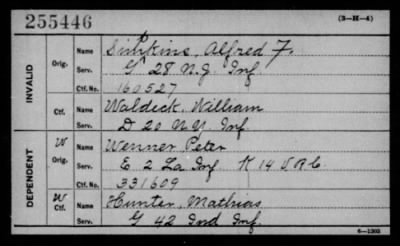 255446 (3-H-4)
INVALID
Orig. Name Simpkins, Alfred F.
Serv. G 28 N.J. Inf
Ctf. No. 160527
Ctf. Name Waldeck, William
Serv. D 20 N.Y. Inf.
DEPENDENT
W Orig. Name Wenner Peter
Serv. E 2 La Inf K 14 V.R.C.
Ctf. No. 331609
W Ctf. Name Hunter, Mathias
Serv. G 42 Ind Inf.
6—1303